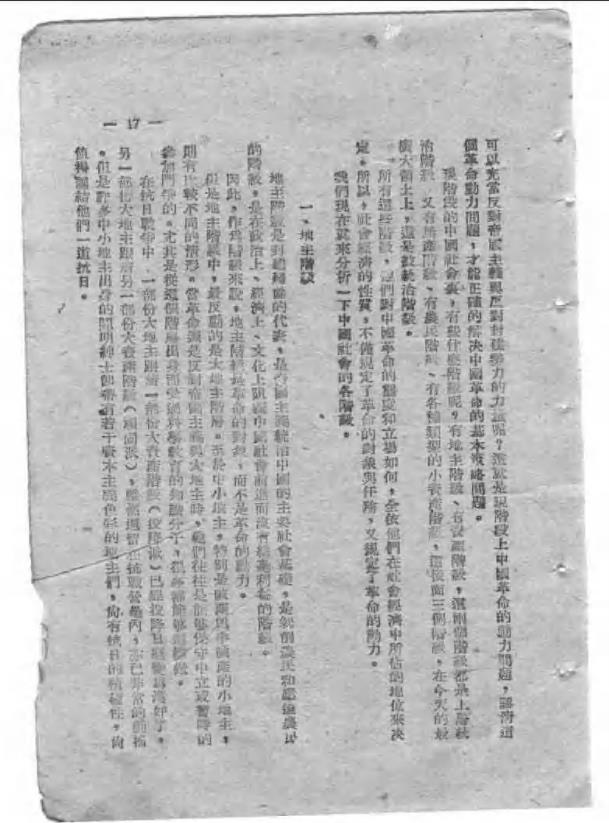 可以充當反對帝國主義與反對封建勢力的力量呢？這就是現階段上中國革命的動力問題，認清這
個革命動力問題，才能正確的解決中國革命的基本戰略問題。
現階段的中國社會裏，有些什麼階級呢？有地主階級、有資產階級，這兩個階級都是上層統
治階級。又有無產階級、有農民階級、有各種類型的小資產階級，這後面三個階級，在今天的最
廣大領土上，還是被統治階級。
所有這些階級，他們對中國革命的態度和立場如何，全依他們在社會經濟中所佔的地位來決
定。所以，社會經濟的性質，不僅規定了革命的對象與任務，又規定了革命的動力。
我們現在就來分析一下中國社會的各階級。
一、地主階級
地主階級是封建 的代表，是帝國主義統治中國的主要社會基礎，是剝削農民和壓迫農民
的階級，是在政治上、經濟上、文化上阻礙中國社會前進而沒有絲毫利益的階級。
因此，作為階級來說，地主階級是革命的對象，而不是革命的動力。
但是地主階級中，最反動的是大地主階層。至於中小地主，特別是破產與半破產的小地主，
則有比較不同的情形。當革命還是反對帝國主義與大地主時，他們往往是能够保守中立或暫時的
參加鬥爭的。尤其是從這個階層出身而受過科學教育的知識分子，
在抗日戰爭中，一部份大地主跟着一部份大資產階級（投降派）已經投降日寇變為漢奸了。
另一部份大地主跟着另一部份大資產階級（頑固派），雖然還留在抗戰營壘內，亦已非常的動搖
。但是許多中小地主出身的開明紳士即帶有若干資本主義色彩的地主們，尚有抗日的積極性，尚
值得團結他們一道抗日。
— 17 —